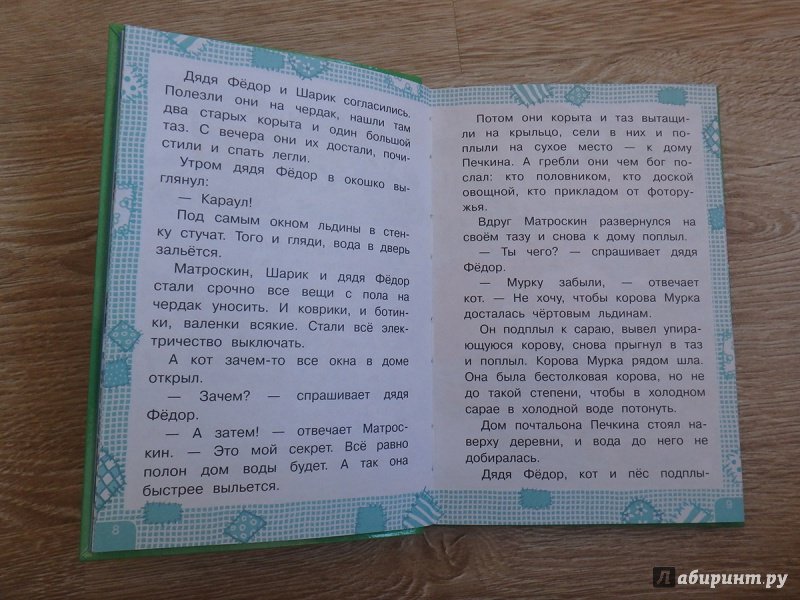 Дядя Фёдор и Шарик согласились.
Полезли они на чердак, нашли там
два старых корыта и один большой
таз. С вечера они их достали, почи-
стили и спать легли.
Утром дядя Фёдор в окошко вы-
глянул:
— Караул!
Под самым окном льдины в стен-
ку стучат. Того и гляди, вода в дверь
зальётся.
Матроскин, Шарик и дядя Фёдор
стали срочно все вещи с пола на
чердак уносить. И коврики, и ботин-
ки, валенки всякие. Стали всё элек-
тричество выключать.
А кот зачем-то все окна в доме
открыл.
— Зачем? — спрашивает дядя
Фёдор.
— А затем! — отвечает Матрос-
кин. — Это мой секрет. Всё равно
полон дом воды будет. А так она
быстрее выльется.
8
Потом они корыта и таз вытащи-
ли на крыльцо, сели в них и по-
плыли на сухое место — к дому
Печкина. А гребли они чем бог по-
слал: кто половником, кто доской
овощной, кто прикладом от фотору-
жья.
Вдруг Матроскин развернулся на
своём тазу и снова к дому поплыл.
— Ты чего? — спрашивает дядя
Фёдор.
— Мурку забыли, — отвечает
кот. — Не хочу, чтобы корова Мурка
досталась чёртовым льдинам.
Он подплыл к сараю, вывел упира-
ющуюся корову, снова прыгнул в таз
и поплыл. Корова Мурка рядом шла.
Она была бестолковая корова, но не
до такой степени, чтобы в холодном
сарае в холодной воде потонуть.
Дом почтальона Печкина стоял на-
верху деревни, и вода до него не
добиралась.
Дядя Фёдор, кот и пёс подплы-
Лабиринт.ру